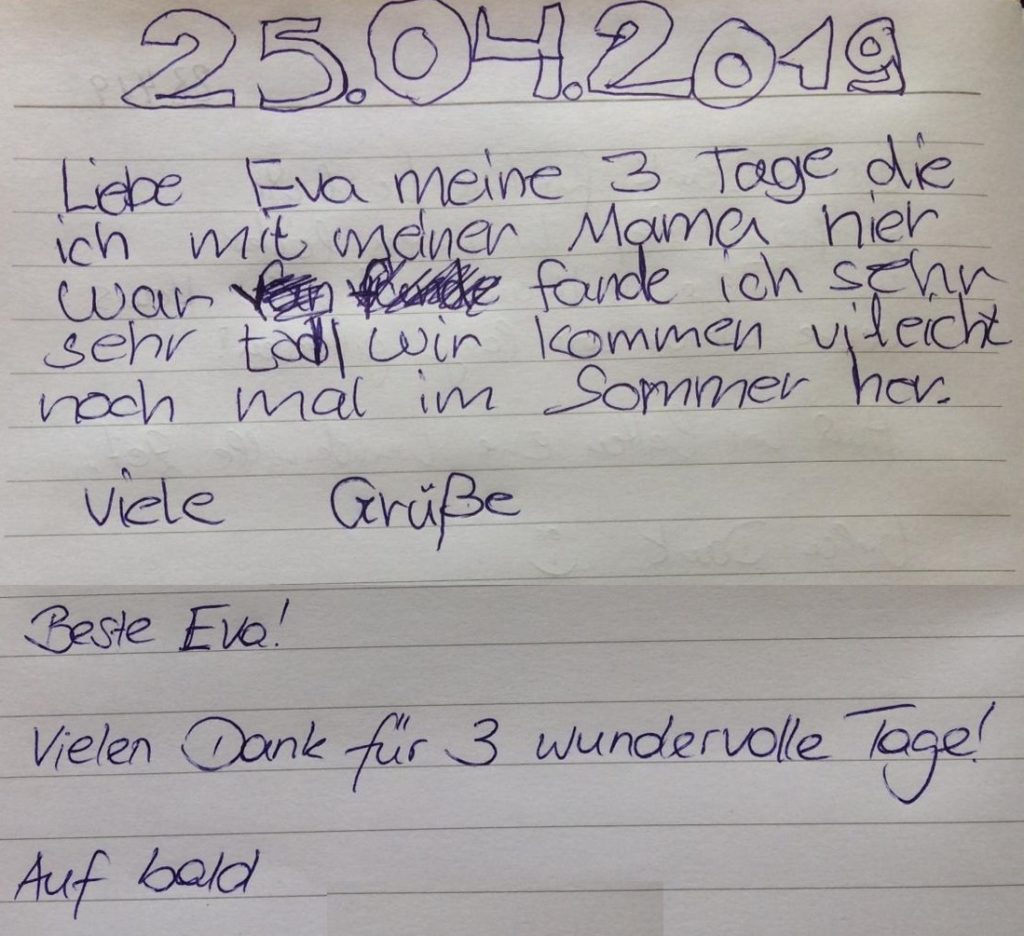 25.04.2019
Liebe Eva meine 3 Tage die
ich mit meiner Mama hier
war fande ich sehr
sehr toll wir kommen vileicht
noch mal im Sommer her.
Viele Grüße
Beste Eva!
Vielen Dank für 3 wundervolle Tage!
Auf bald